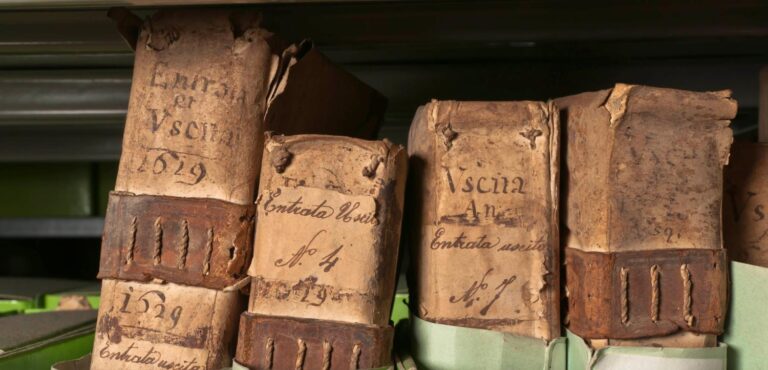 Entrata
et
Vscita
1619
1629
Entrata uscita
Entrata Uscita
N.o 4
Vscita
An
Entrata uscita
N.o 7.